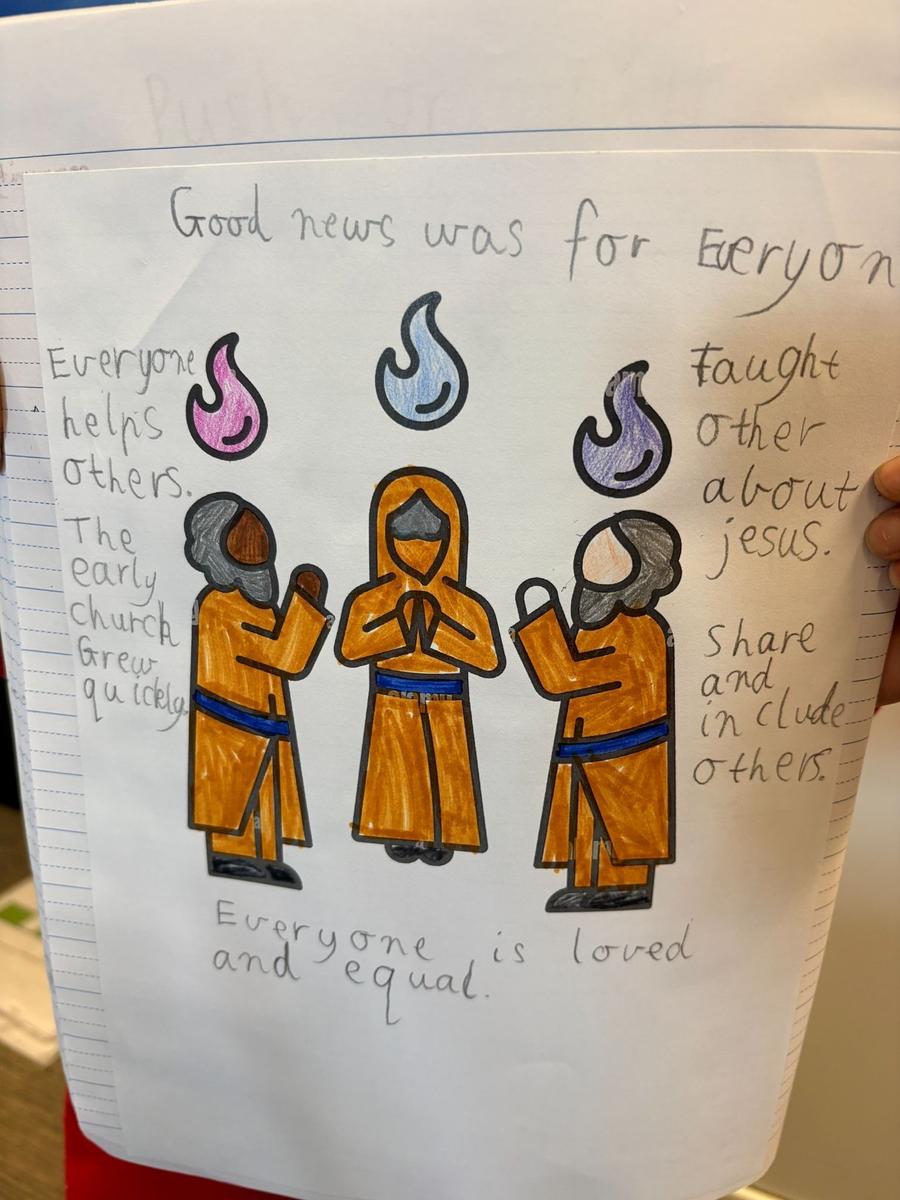 Good news was for Everyon
Everyone
helps
others.
The
early
church
Grew
quickly.
taught
other
about
jesus.
Share
and
include
others.
Everyone is loved
and equal.